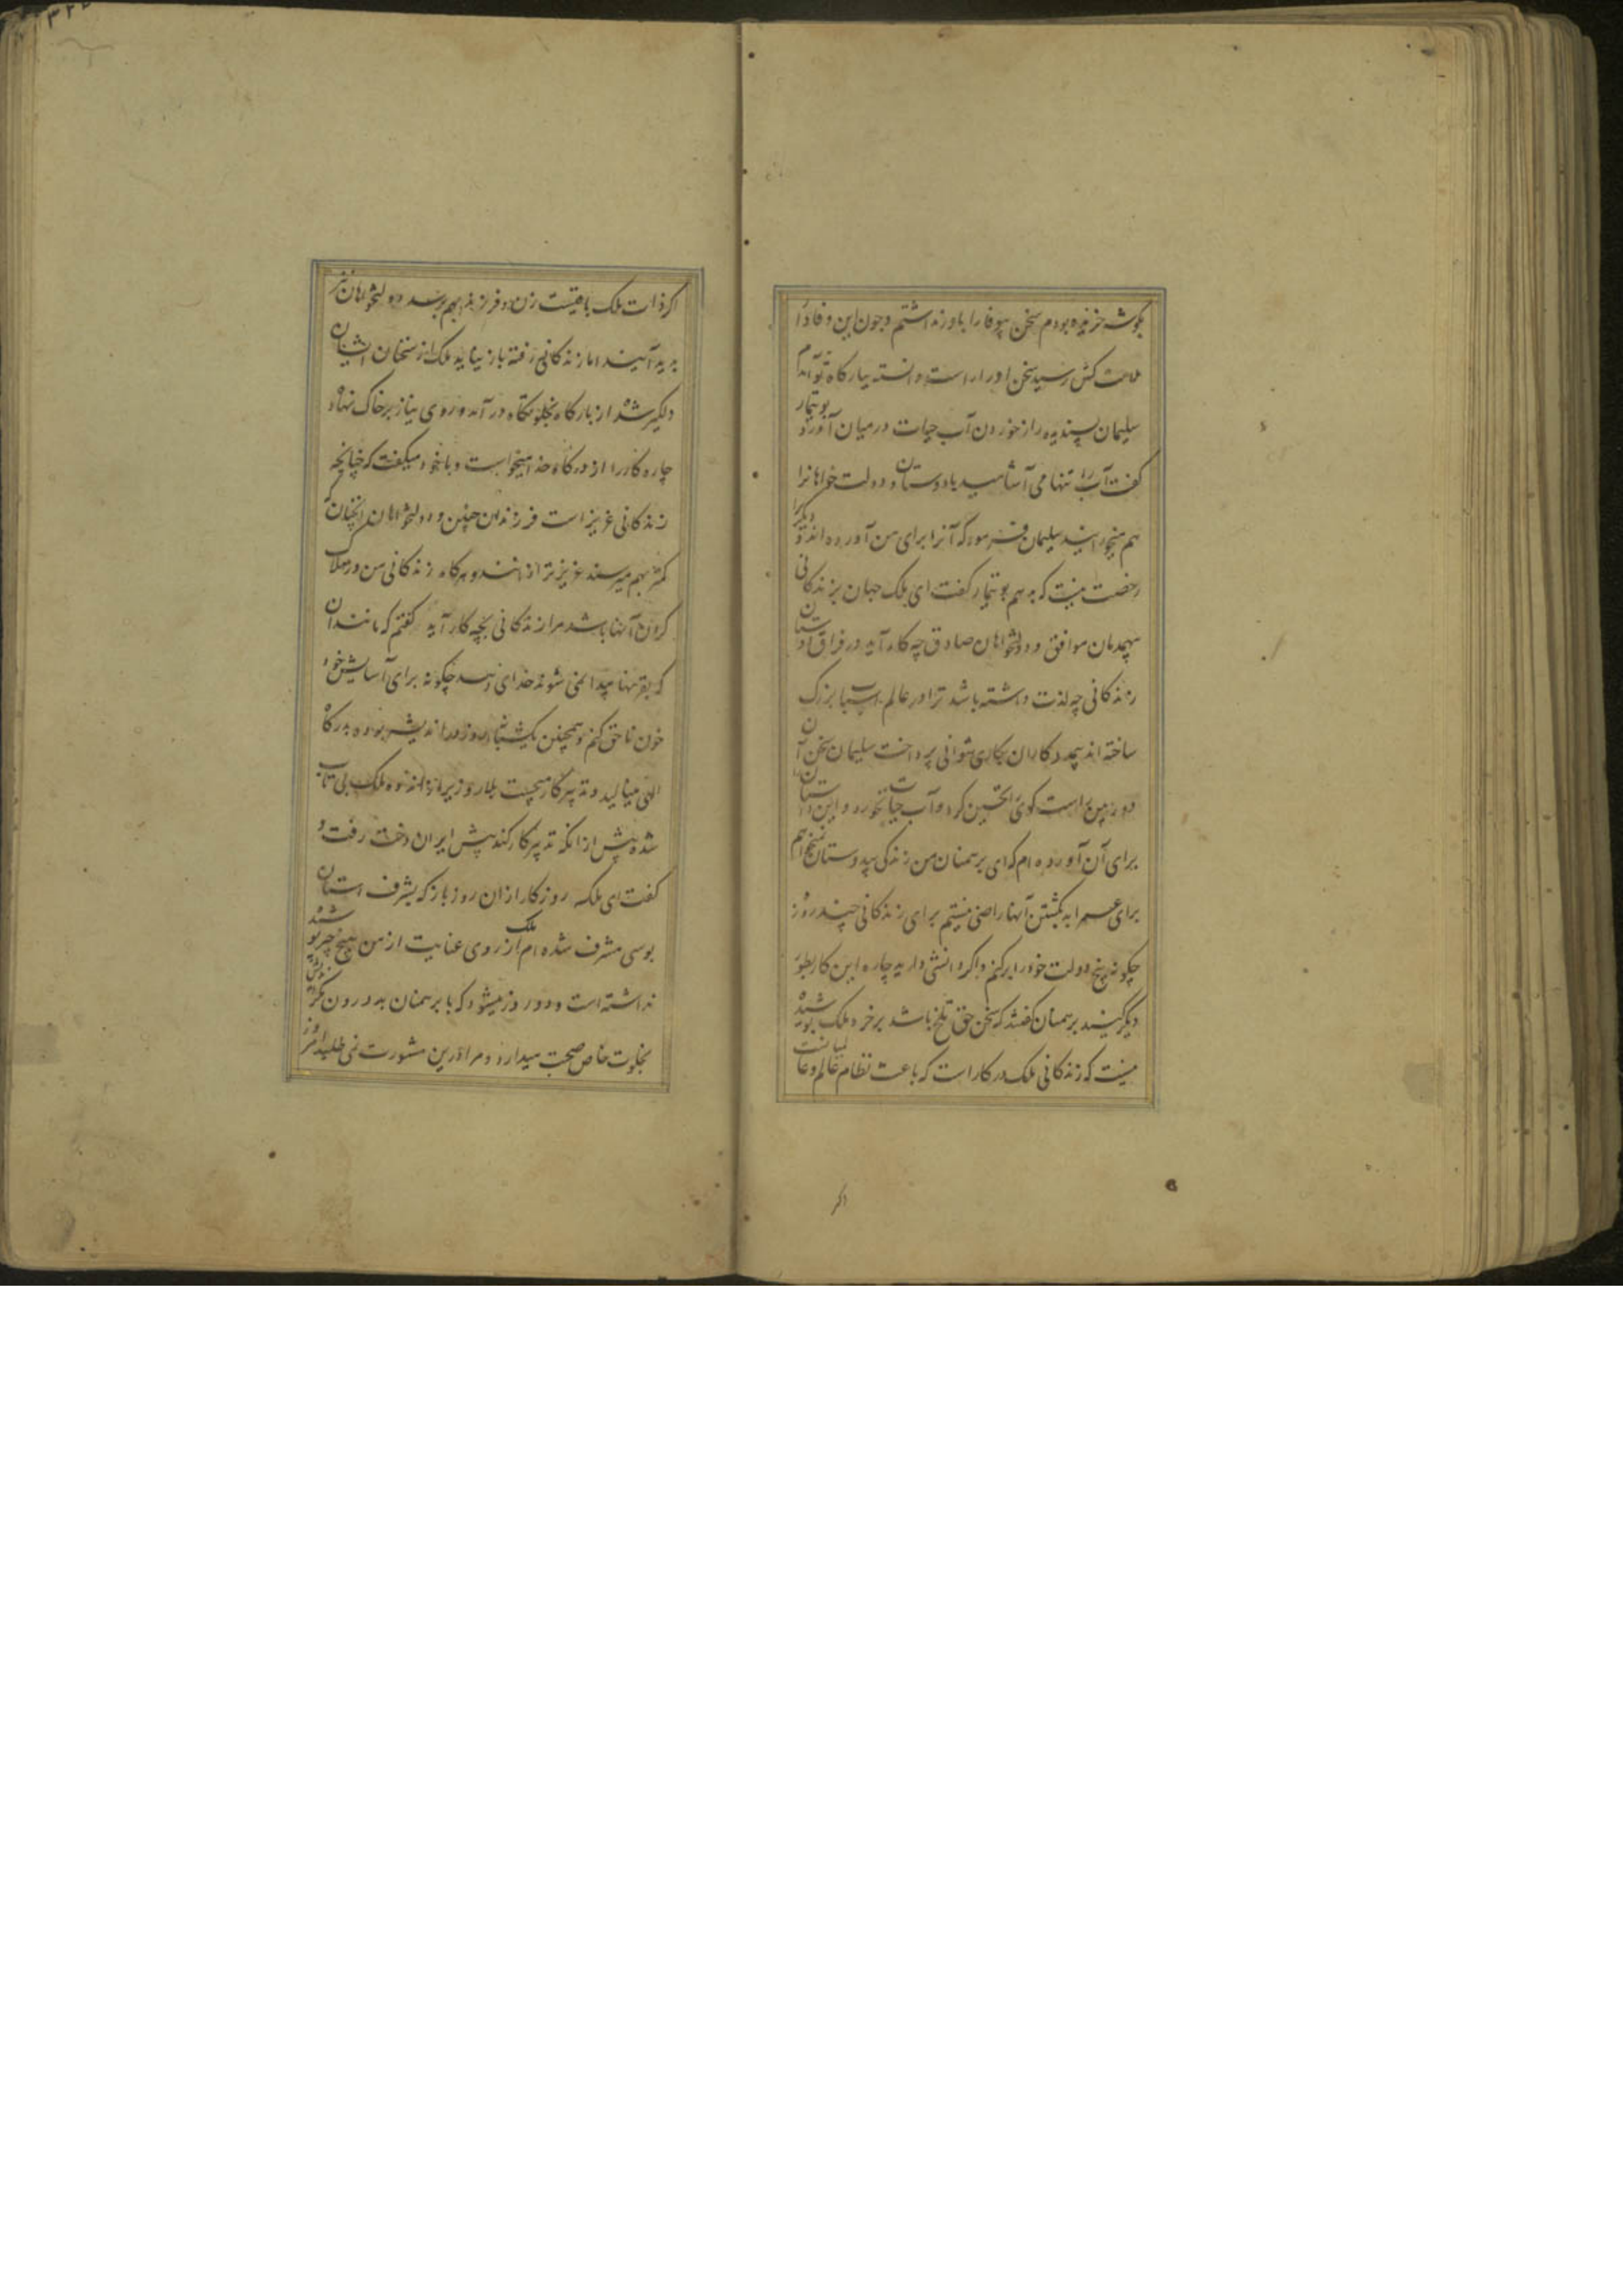 بگوشه خزیده بودم سخن بیوفا را باور نداشتم و چون این وفادا
ملامت کش رسید سخن او را راست دانسته ببارگاه تو آمدم
سلیمان پسندیده راز خوردن آب حیات در میان آورد بوتیمار
گفت آب را تنها می آشامید یا دوستان و دولت خواهانرا
هم میخورانید سلیمان فرمود که آنرا برای من آورده اند و دیگرا
رخصت نیست که بدهم بوتیمار گفت ای ملک جهان بزندگانی
بیهمدمان موافق و دولتخواهان صادق چه کار آید در فراق دوستان
زندگانی چه لذت داشته باشد ترا در عالم اسباب بزرگ
ساخته اند بیمددکاران بکاری نتوانی پرداخت سلیمان سخن آن
دوربین راست گوی را تحسین کرد و آب حیات نخورد و این داستان
برای آن آورده ام که ای برهمنان من زندگی بیدوستان نمیخواهم
برای عمر ابد بکشتن آنها راضی نیستم برای زندگانی چند روز
چگونه بیخ دولت خود را برکنم و اگر دانشی دارید چاره این کار بطور
دیگر کنید برهمنان گفتند که سخن حق تلخ باشد بر خرد ملک پوشیده
نیست که زندگانی ملک در کار است که باعث نظام عالم و عالمیانست
اگر
۳۲۲
اگر ذات ملک باقیست زن و فرزند بهم برسد و دولتخواهان نیز
پدید آیند اما زندگانی رفته باز نیاید ملک از سخنان ایشان
دلگیر شد از بارگاه بخلوتگاه در آمد و روی نیاز بر خاک نهاد
چاره کار را از درگاه خدا میخواست و با خود میگفت که چنانچه
زندگانی عزیز است فرزندان چنین و دولتخواهان اینچنان
کمتر بهم میرسند عزیزتر از آنند و هرگاه زندگانی من در هلاک
کردن آنها باشد مرا زندگانی بچه کار آید گفتم که مانند آن
که بقرنها پیدا نمی شوند خدای دهد چگونه برای آسایش خود
خون ناحق کنم و همچنین یکشبانروز در اندیشه بوده بدرگاه
الهی مینالید و تدبیر کار میجست بلار وزیر از اندوه ملک بی تاب
شده پیش از آنکه تدبیر کار کند پیش ایران دخت رفت و
گفت ای ملکه روزگار ازان روز باز که بشرف استان
بوسی مشرف شده ام ملک از روی عنایت از من هیچ چیز پوشیده
نداشته است و دو روز میشود که با برهمنان بد درون نکوهیده
بخلوت خاص صحبت میدارد و مرا درین مشورت نمی طلبد امروز